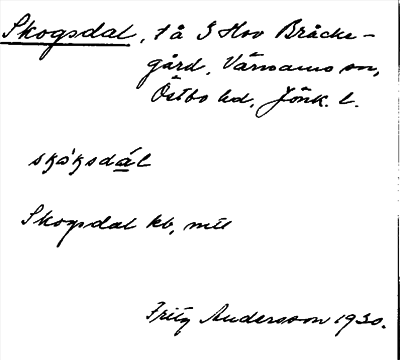 Skogsdal, t å S Hov Bräcke-
gård, Värnamo sn,
Östbo hd, Jönk. l.
skógsdál
Skogsdal kb, mtl
Fritz Andersson 1930.